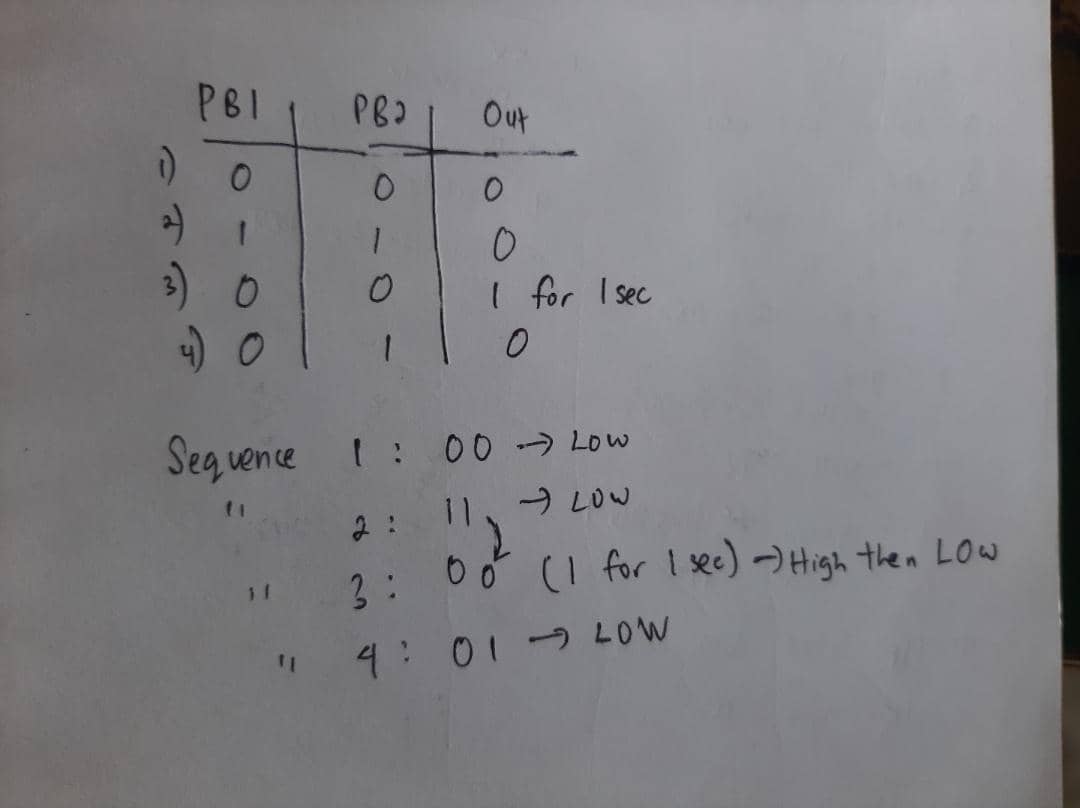 PB1 PB2 Out
1) 0 0 0
2) 1 1 0
3) 0 0 1 for 1 sec
4) 0 1 0
Sequence 1 : 00 → LOW
" 2 : 11 → LOW
" 3 : 00 (1 for 1 sec) → High then LOW
" 4 : 01 → LOW